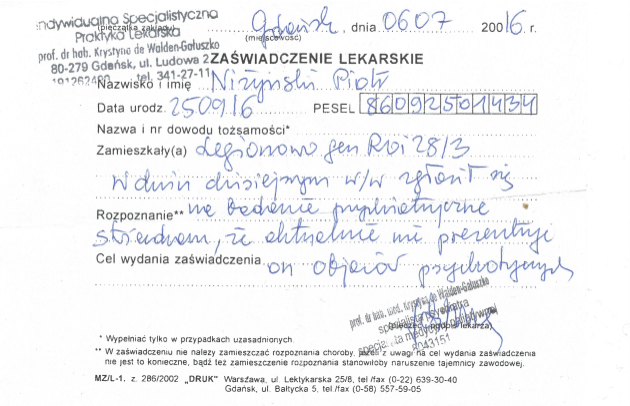 Indywidualna Specjalistyczna
Praktyka Lekarska
(pieczątka zakładu)
prof. dr hab. Krystyna de Walden-Gałuszko
80-279 Gdańsk, ul. Ludowa 2
191262480 tel. 341-27-11
Gdańsk, dnia 0607 20016. r.
(miejscowość)
ZAŚWIADCZENIE LEKARSKIE
Nazwisko i imię Niżyński Piotr
Data urodz. 250916 PESEL 86092501434
Nazwa i nr dowodu tożsamości*
Zamieszkały(a) Legionowo gen. Roi 28/3
W dniu dzisiejszym w/w zgłosił się
Rozpoznanie** na badanie psychiatryczne
stwierdzam, że aktualnie nie prezentuje
Cel wydania zaświadczenia on objawów psychotycznych
prof. dr hab. med. Krystyna de Walden-Gałuszko
specjalista psychiatra
specjalista medycyny paliatywnej
8043151
(pieczęć i podpis lekarza)
* Wypełniać tylko w przypadkach uzasadnionych.
** W zaświadczeniu nie należy zamieszczać rozpoznania choroby, jeżeli z uwagi na cel wydania zaświadczenia
nie jest to konieczne, bądź też zamieszczenie rozpoznania stanowiłoby naruszenie tajemnicy zawodowej.
MZ/L-1. z. 286/2002 „DRUK" Warszawa, ul. Lektykarska 25/8, tel /fax (0-22) 639-30-40
Gdańsk, ul. Bałtycka 5, tel /fax (0-58) 557-59-05